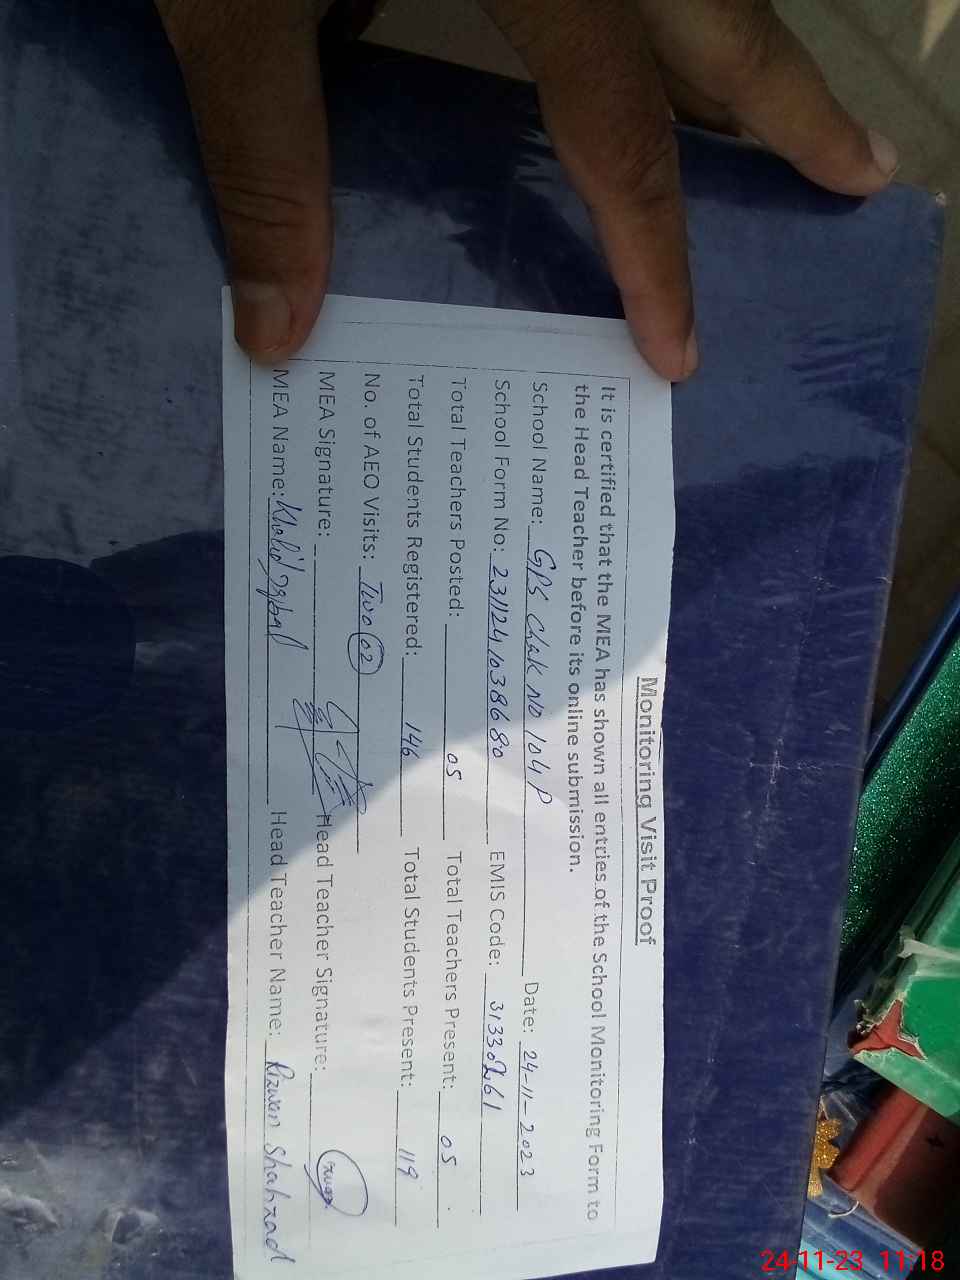 Monitoring Visit Proof
It is certified that the MEA has shown all entries of the School Monitoring Form to
the Head Teacher before its online submission.
School Name: GPS Chak No 104 P Date: 24-11-2023
School Form No: 2311241038680 EMIS Code: 31330261
Total Teachers Posted: 05 Total Teachers Present: 05
Total Students Registered: 146 Total Students Present: 119
No. of AEO Visits: Two (02)
MEA Signature: Head Teacher Signature:
MEA Name: Khalid Iqbal Head Teacher Name: Rizwan Shahzad
24-11-23 11:18